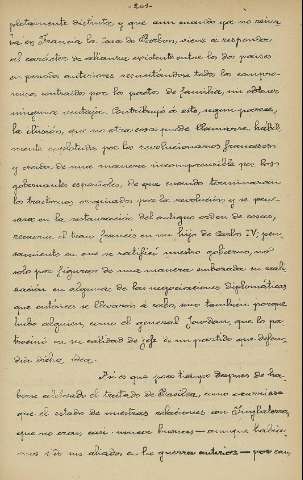 -201-
pletamente distinta, y que aun cuando ya no reina
ba en Francia la Casa de Borbon, viene a responder
al carácter de alianza existente entre los dos paises
en periodos anteriores resucitandose todos los compro-
misos contraidos por los pactos de familia, sin obtener
ninguna ventaja. Contribuyó a esto, segun parece,
la ilusión, que no otra cosa puede llamarse, habil
mente explotada por los revolucionarios franceses
y creida de una manera incomprensible por los
gobernantes españoles, de que cuando terminaran
los trastornos originados por la revolución y se pen-
sara en la restauración del antiguo orden de cosas,
recaería el trono francés en un hijo de Carlos IV; pen-
samiento en que se ratificó nuestro gobierno, no
solo por figurar de una manera embozada su reali-
zación en algunas de las negociaciones diplomáticas
que entonces se llevaron á cabo, sino tambien porque
hubo alguien, como el general Jourdan, que lo pa-
trocinó en su calidad de jefe de un partido que defen-
dia dicha idea.
Asi es que poco tiempo despues de ha-
berse celebrado el tratado de Basilea, como ocurriese
que el estado de nuestras relaciones con Inglaterra,
que no eran, casi nunca buenas — aunque habia-
mos sido sus aliados en la guerra anterior — por cau